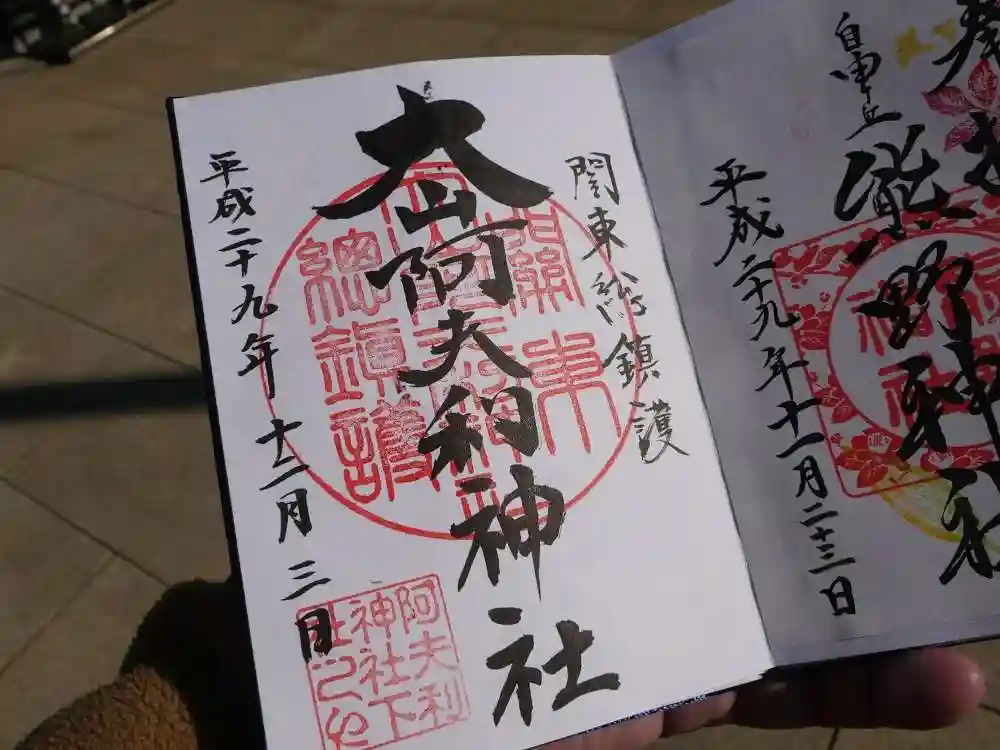 奉拝
自由が丘
熊野神社
平成二十九年十一月二十三日
関東総鎮護
大山阿夫利神社
平成二十九年十二月三日
關東
總鎮護
阿夫利
神社下
社之印